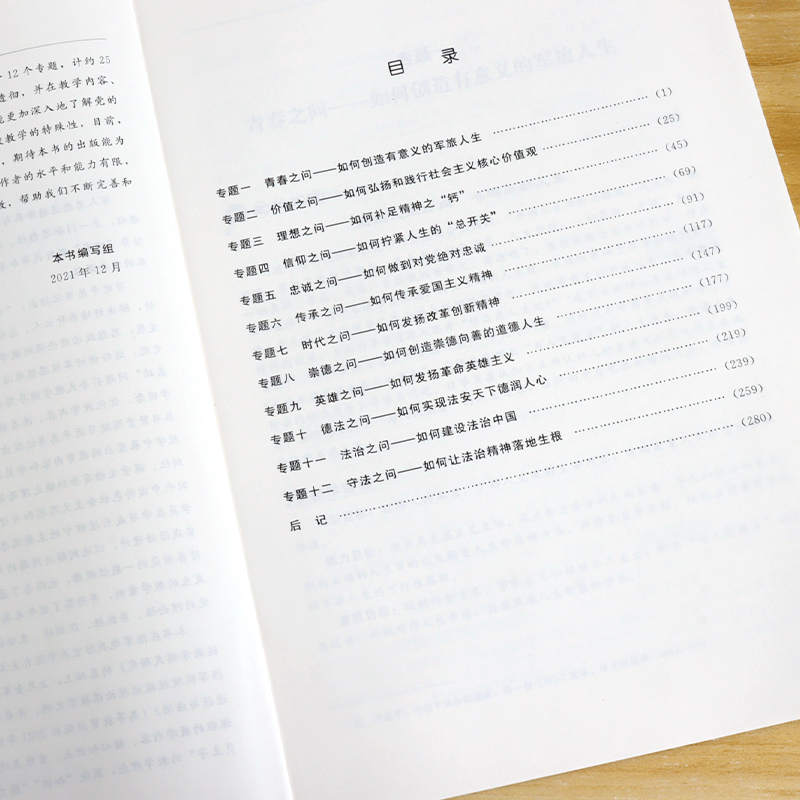 12个专题，计约25
透彻，并在教学内容、
能更加深入地了解党的
教学的特殊性，目前，
，期待本书的出版能为
作者的水平和能力有限，
，帮助我们不断完善和
本书编写组
2021年12月
目 录
专题一 青春之问——如何创造有意义的军旅人生 (1)
专题二 价值之问——如何弘扬和践行社会主义核心价值观 (25)
专题三 理想之问——如何补足精神之“钙” (45)
专题四 信仰之问——如何拧紧人生的“总开关” (69)
专题五 忠诚之问——如何做到对党绝对忠诚 (91)
专题六 传承之问——如何传承爱国主义精神 (117)
专题七 时代之问——如何发扬改革创新精神 (147)
专题八 崇德之问——如何创造崇德向善的道德人生 (177)
专题九 英雄之问——如何发扬革命英雄主义 (199)
专题十 德法之问——如何实现法安天下德润人心 (219)
专题十一 法治之问——如何建设法治中国 (239)
专题十二 守法之问——如何让法治精神落地生根 (259)
后 记 (280)